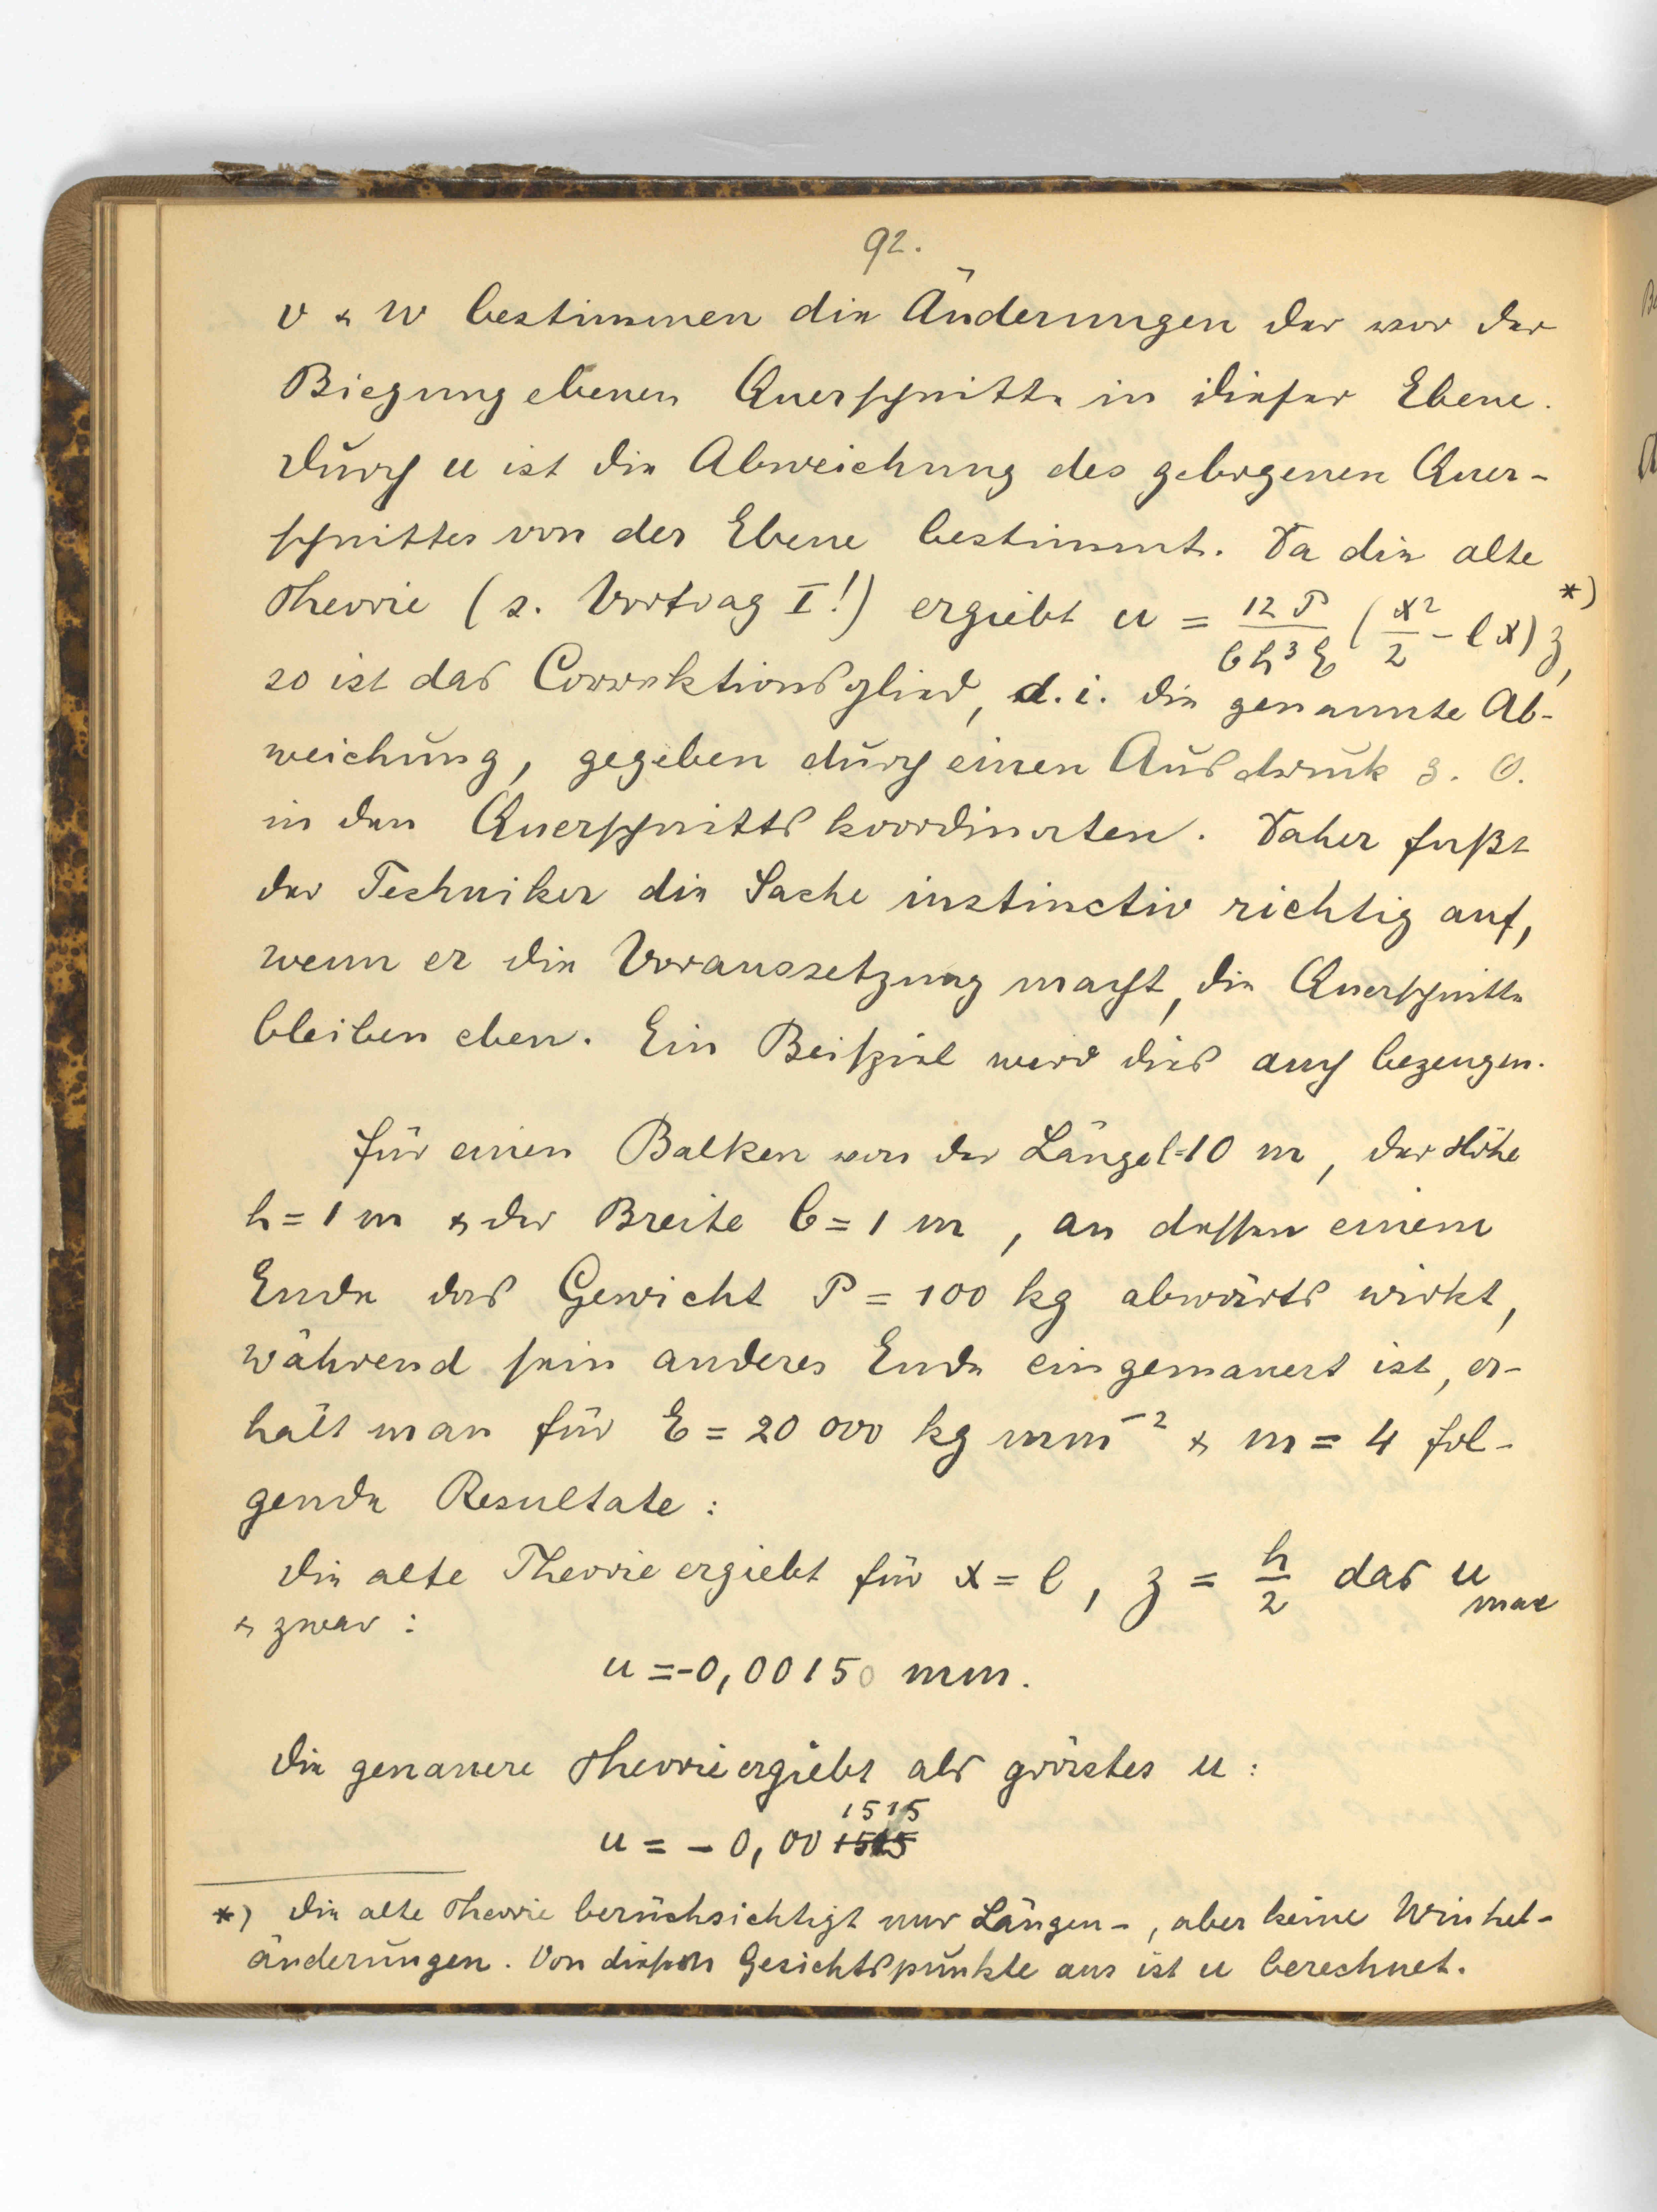 92.
v & w bestimmen die Änderungen der vor der
Biegung ebenen Querschnitte in dieser Ebene.
Durch u ist die Abweichung des gebogenen Quer-
schnittes von der Ebene bestimmt. Da die alte
Theorie (s. Vortrag I!) ergiebt u = \frac{12 P}{b h³ E} (\frac{x²}{2} - l x) z, *)
so ist das Correktionsglied, d. i. die genannte Ab-
weichung, gegeben durch einen Ausdruck 3. O.
in den Querschnittskoordinaten. Daher faßt
der Techniker die Sache instinctiv richtig auf,
wenn er die Voraussetzung macht, die Querschnitte
bleiben eben. Ein Beispiel wird dies auch bezeugen.
Für einen Balken von der Länge l=10 m, der Höhe
h = 1 m & der Breite b = 1 m, an dessen einem
Ende das Gewicht P = 100 kg abwärts wirkt,
während sein anderes Ende eingemauert ist, er-
hält man für E = 20 000 kg mm⁻² & m = 4 fol-
gende Resultate:
Die alte Theorie ergiebt für x = l, z = \frac{h}{2} das u max
& zwar:
u = -0,00150 mm.
Die genauere Theorie ergiebt als grösstes u:
1515
u = - 0,00
*) Die alte Theorie berücksichtigt nur Längen-, aber keine Winkel-
änderungen. Von diesem Gesichtspunkte aus ist u berechnet.